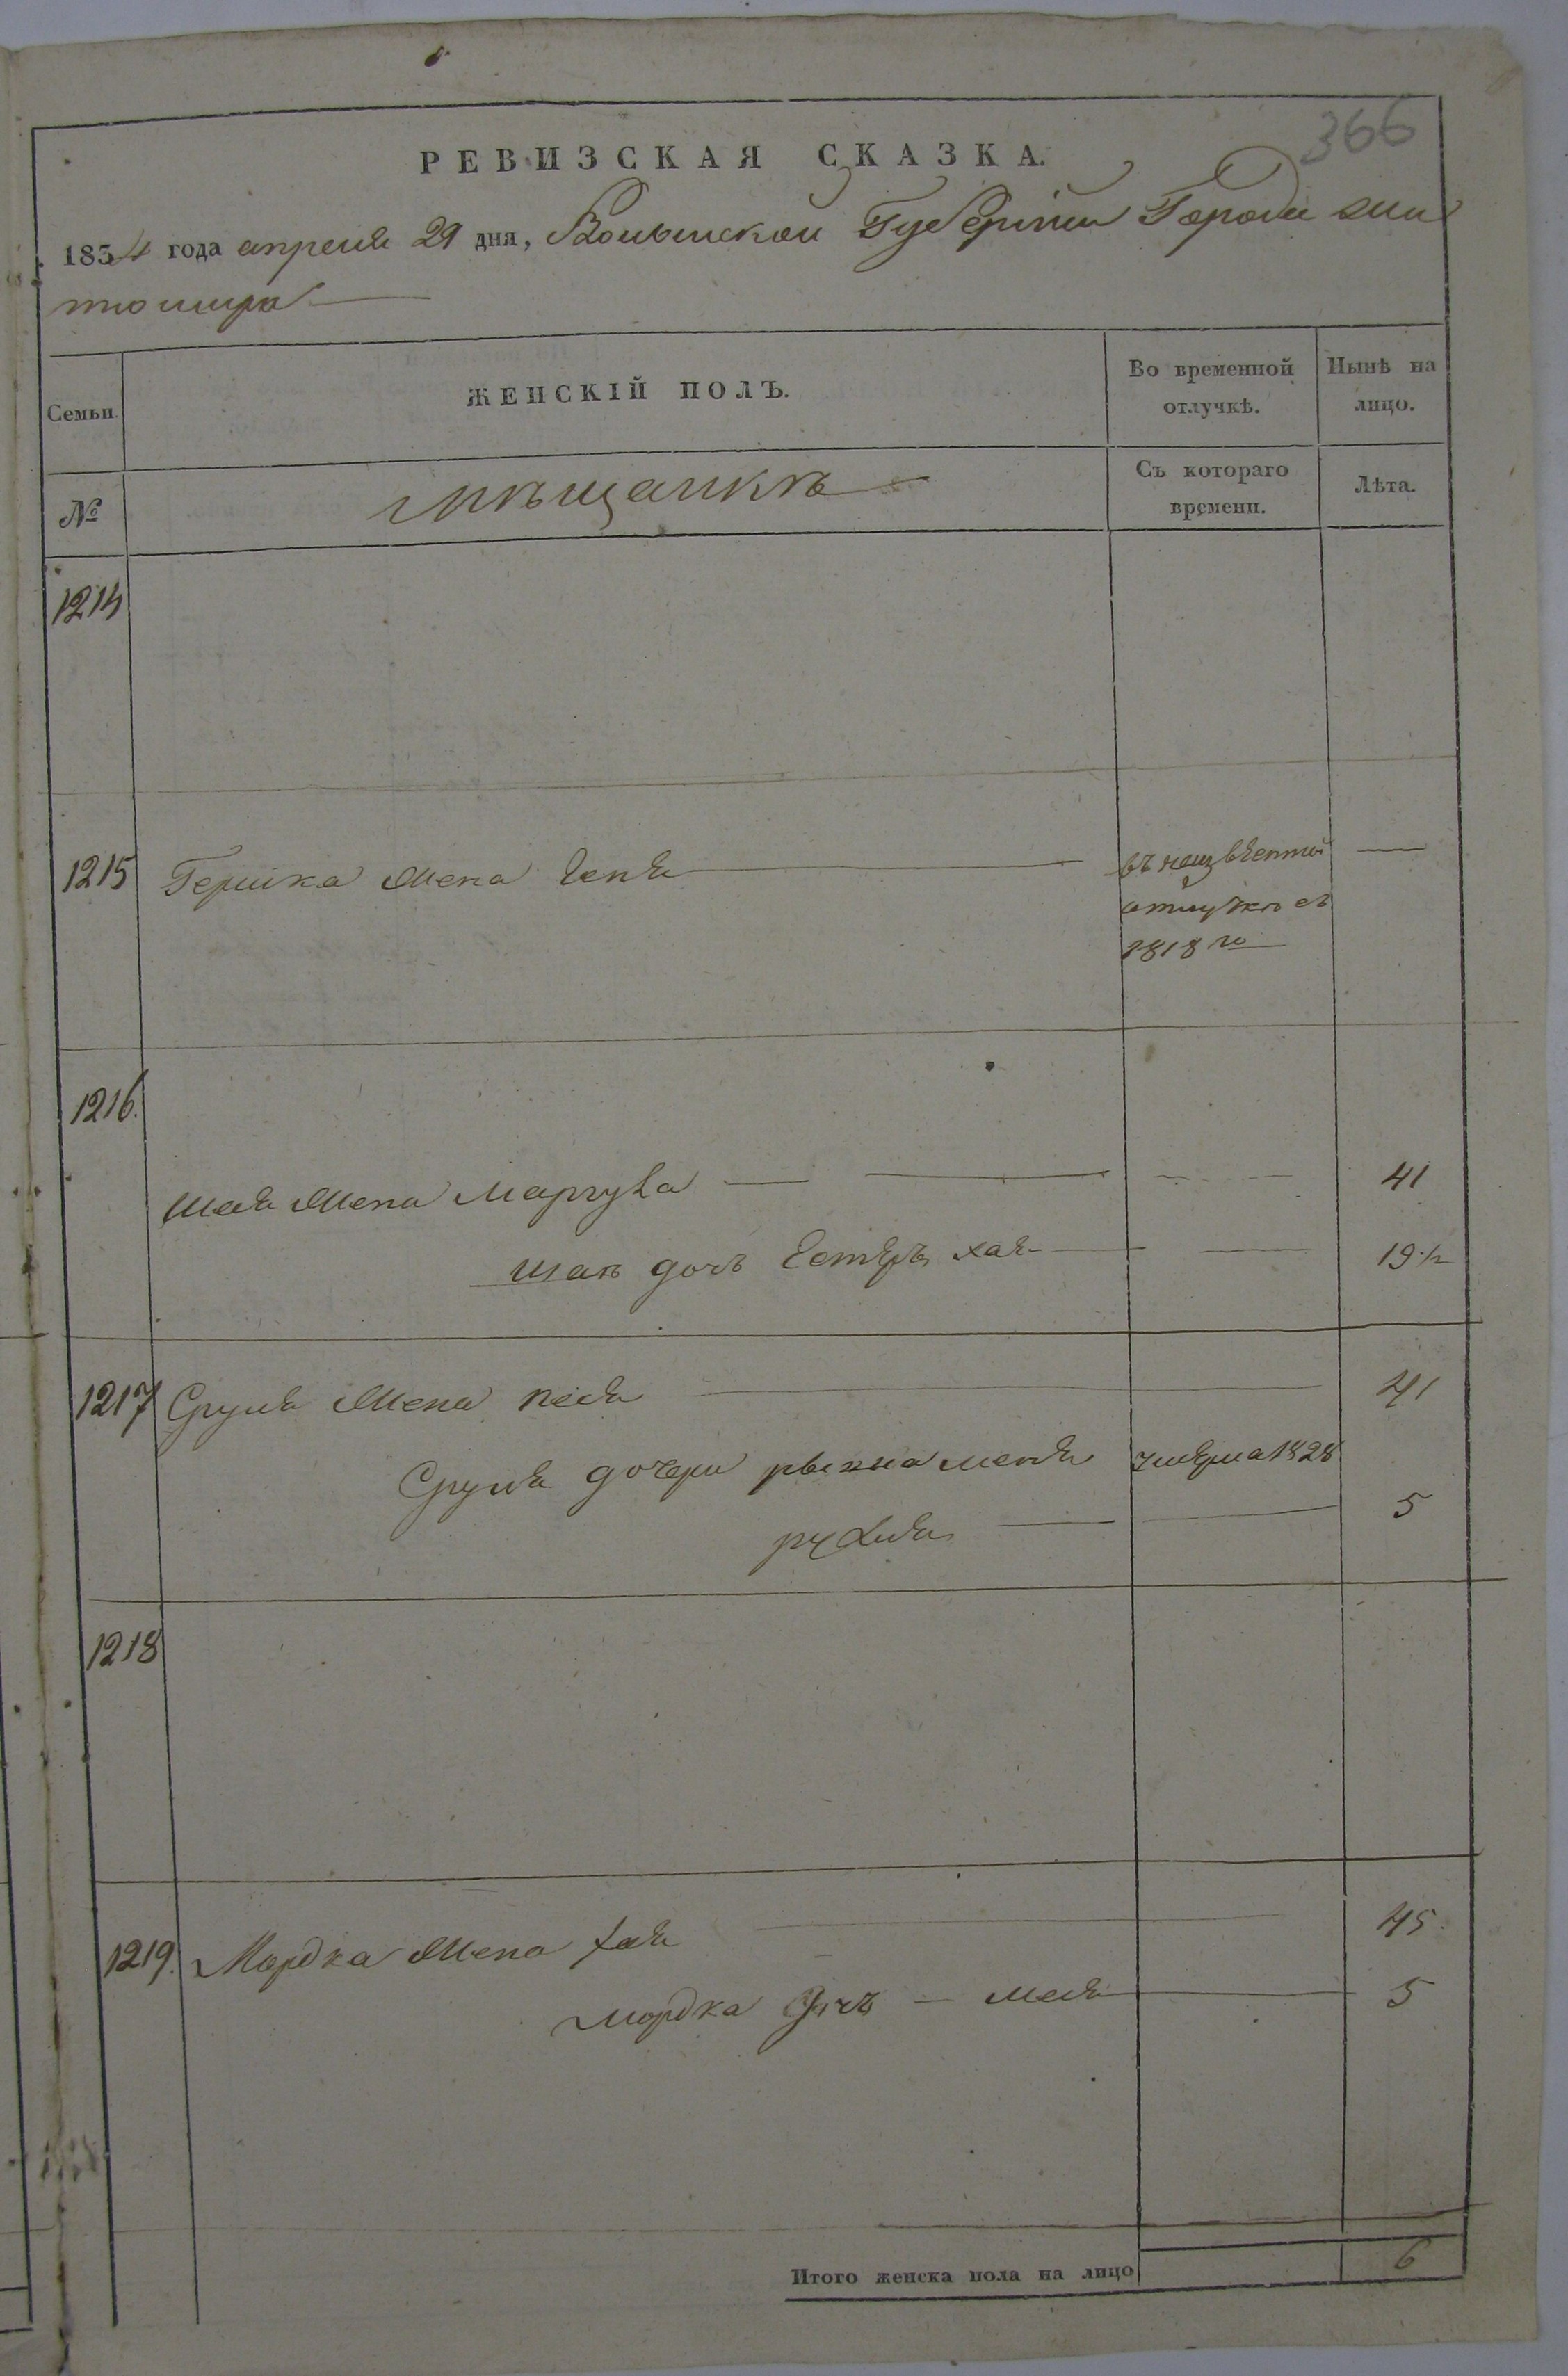 366
РЕВИЗСКАЯ СКАЗКА.
1834 года апреля 29 дня, Волынской Губернiи Города Жи
томира
Семьи
ЖЕНСКІЙ ПОЛЪ.
Во временной
отлучкѣ.
Нынѣ на
лицо.
№
мѣщанкѣ
Съ котораго
времени.
Лѣта.
1214
1215 Гершка жена Геня — въ неизвѣстной —
отлучкѣ съ
1818 го
1216.
Шая жена — 41
Шая дочь Естеръ хая — 19½
1217 Сруля жена песя — 41
Сруля дочери меня умерла 1828
рухля — 5
1218
1219. Мордка жена хая — 45.
мордка дочь — 5
Итого женска пола на лицо 6